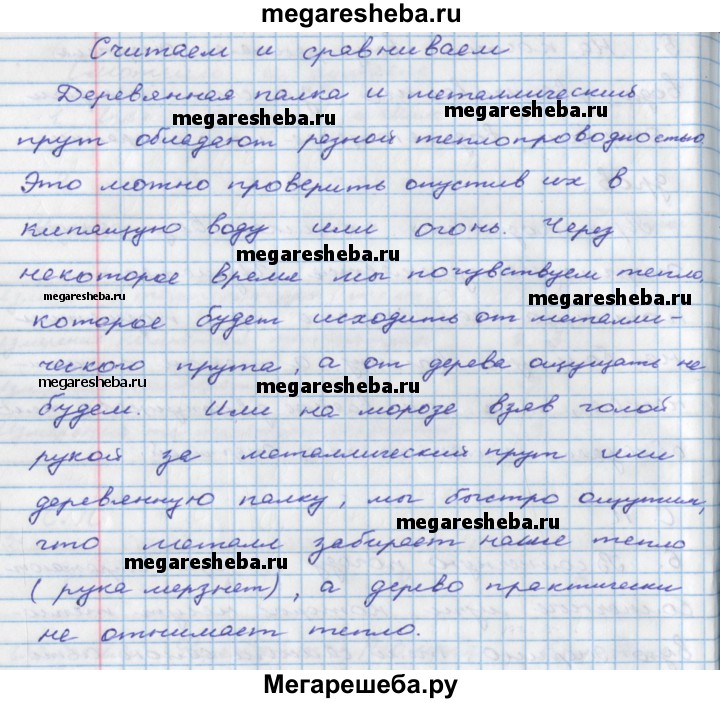 megaresheba.ru
Считаем и сравниваем
Деревянная палка и металлический
megaresheba.ru
megaresheba.ru
прут обладают разной теплопроводностью
Это можно проверить опустив их в
кипящую воду или огонь. Через
megaresheba.ru
некоторое время мы почувствуем тепло,
megaresheba.ru
megaresheba.ru
которое будет исходить от металли-
ческого прута, а от дерева ощущать не
megaresheba.ru
megaresheba.ru
будем. Или на морозе взяв голой
рукой за металлический прут или
деревянную палку, мы быстро ощутим,
megaresheba.ru
что металл забирает наше тепло
megaresheba.ru
(рука мерзнет), а дерево практически
не отнимает тепло.
Мегарешеба.ру